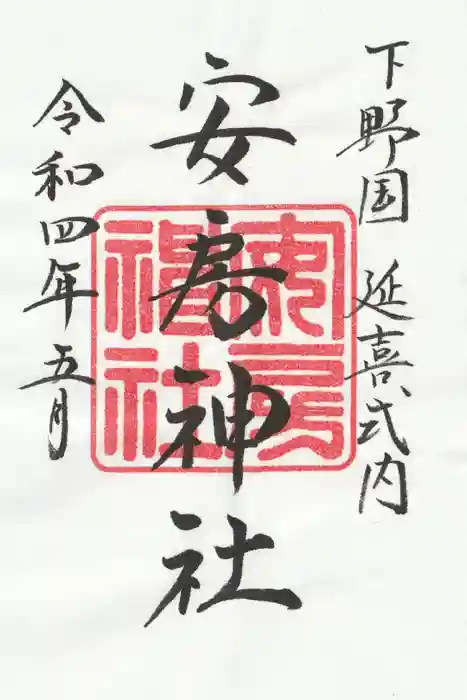 下野国 延喜式内
安房神社
令和四年五月
安房神社